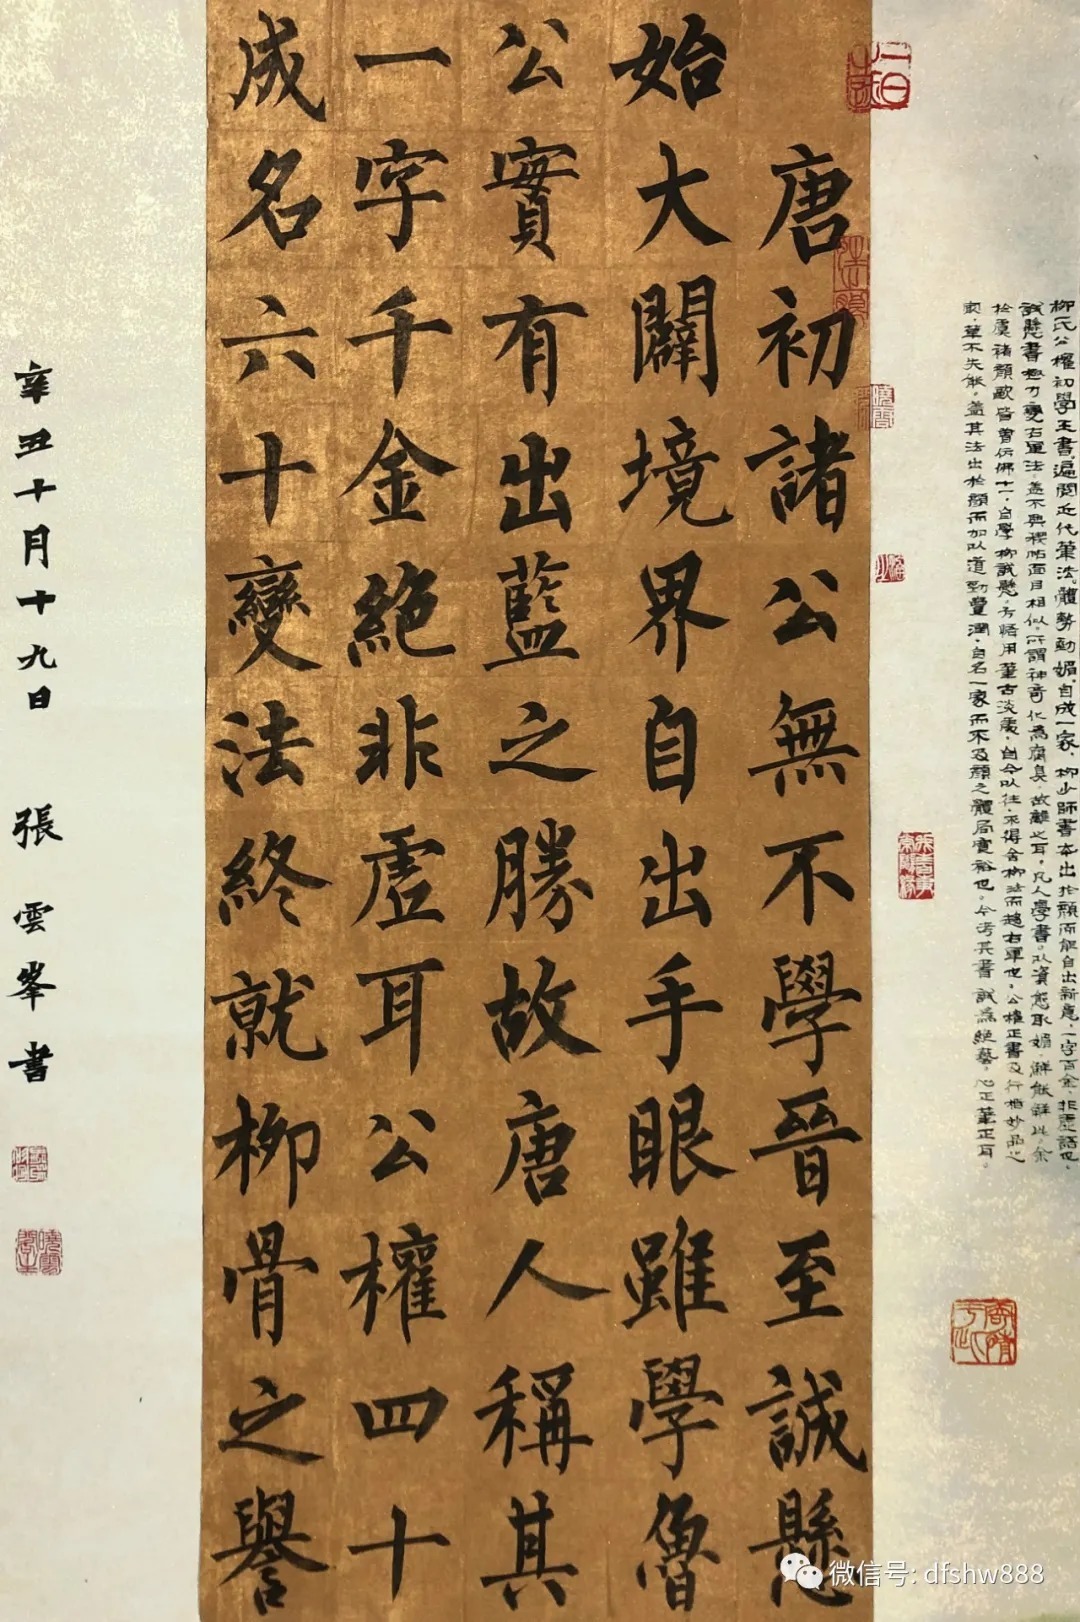 柳氏公權初學王書。遍閱近代筆法。體勢勁媚。自成一家。柳少師書本出於顏而能自出新意。一字百金。非虛語也。
誠懸書極力變右軍法。蓋不與禊帖面目相似。所謂神奇化為腐臭。故離之耳。凡人學書。以資態取媚。鮮能解此。余
於虞褚顏歐皆曾仿佛十一。自學柳誠懸。方悟用筆古淡處。自今以往。不得舍柳法而趨右軍也。公權正書及行楷妙品之
最。草不失能。蓋其法出於顏而加以遒勁豐潤。自名一家而不及顏之體局寬裕也。今考其書誠為絕藝。心正筆正耳。
唐初諸公無不學晉至誠懸
始大闢境界自出手眼雖學魯
公實有出藍之勝故唐人稱其
一字千金絕非虛耳公權四十
成名六十變法終就柳骨之譽
辛丑十月十九日 張雲峯書
微信号: dfshw888